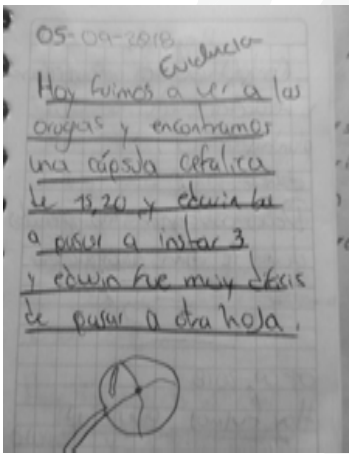 05-09-2018
Evidencia
Hoy fuimos a ver a las
orugas y encontramos
una cápsula cefalica
de 15,20 y edwin ba
a pasar a instar 3
y edwin fue muy dificis
de pasar a otra hoja.